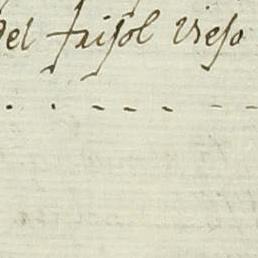 del frisol viejo